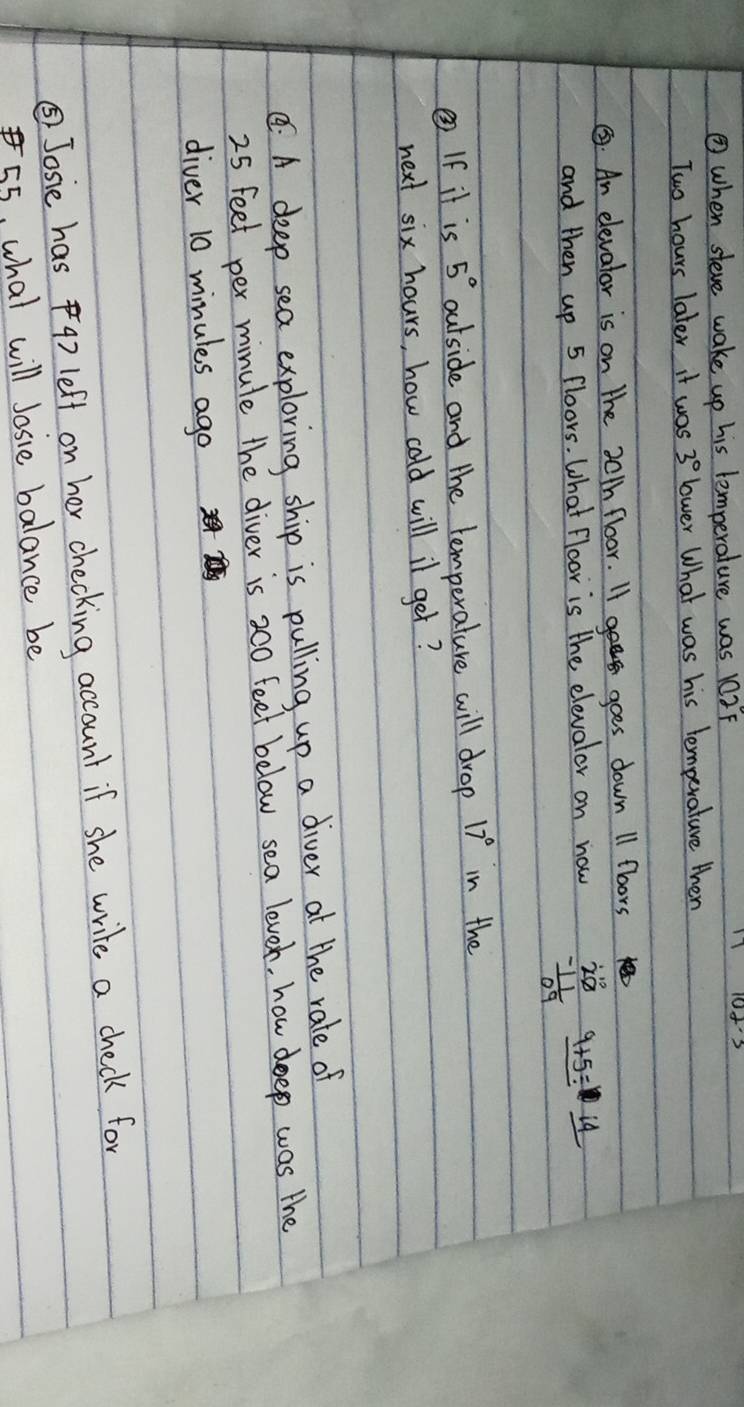 ② when steve wake up his temperature was 102°F
Two hours later it was 3° lower What was his temperature then
③. An elevator is on the 20th floor. It goes down 11 floors
and then up 5 floors. What floor is the elevator on now
20
-11
09
9+5= 14
③ If it is 5° outside and the temperature will drop 17° in the
next six hours, how cold will it get?
④. A deep sea exploring ship is pulling up a diver at the rate of
25 feet per minute the diver is 200 feet below sea level, how deep was the
diver 10 minutes ago
⑤ Josie has $47 left on her checking account if she write a check for
$55, what will Josie balance be